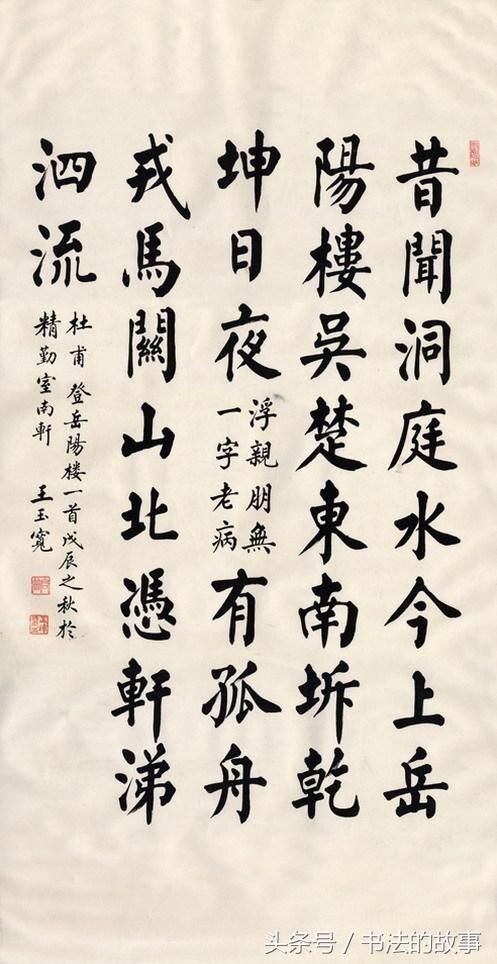 昔聞洞庭水今上岳
陽樓吳楚東南坼乾
坤日夜
浮親朋無
一字老病
有孤舟
戎馬關山北憑軒涕
泗流
杜甫登岳陽楼一首戊辰之秋於
精勤室南軒 王玉寬
头条号 / 书法的故事